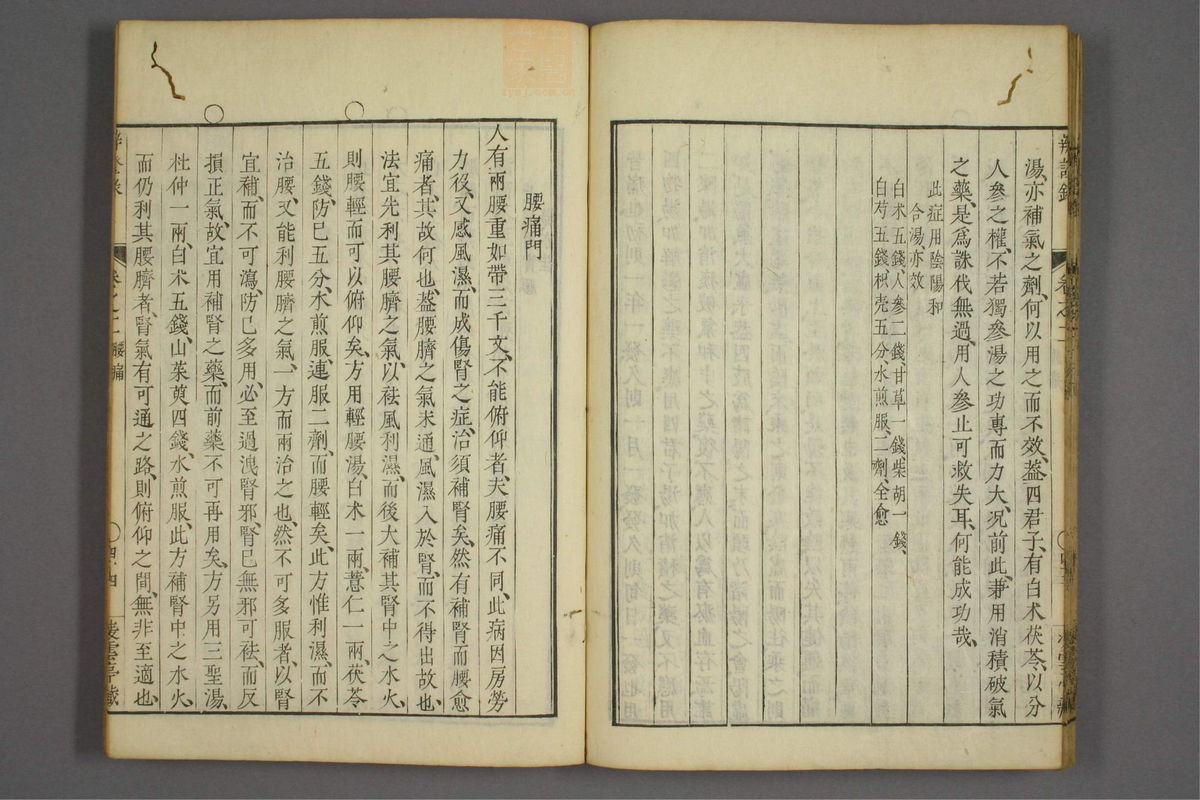 辨證錄
卷之二
湯、亦補氣之劑、何以用之而不效、葢四君子、有白术茯苓、以分
人參之權、不若獨參湯之功專而力大、况前此、兼用消積破氣
之藥、是爲誅伐無過、用人參止可救失耳、何能成功哉、
此症用陰陽和
合湯、亦效
白术五錢、人參二錢甘草一錢柴胡一錢、
白芍五錢枳壳五分水煎服、二劑、全愈
腰痛門
人有兩腰重如帶三千文、不能俯仰者、夫腰痛不同、此病因房勞
力役、又感風濕、而成傷腎之症、治須補腎矣、然有補腎而腰愈
痛者、其故何也、葢腰臍之氣未通、風濕入於腎、而不得出故也、
法宜先利其腰臍之氣、以祛風利濕、而後大補其腎中之水火、
則腰輕而可以俯仰矣、方用輕腰湯、白术一兩、薏仁一兩、茯苓
五錢、防已五分、水煎服、連服二劑、而腰輕矣、此方惟利濕、而不
治腰、又能利腰臍之氣、一方而兩治之也、然不可多服者、以腎
宜補、而不可瀉、防已多用、必至過洩腎邪、腎已無邪可祛、而反
損正氣、故宜用補腎之藥、而前藥不可再用矣、方另用三聖湯、
杜仲一兩、白术五錢、山茱萸四錢、水煎服、此方補腎中之水火、
而仍利其腰臍者、腎氣有可通之路、則俯仰之間、無非至適也、
卷之二 腰痛
四十四